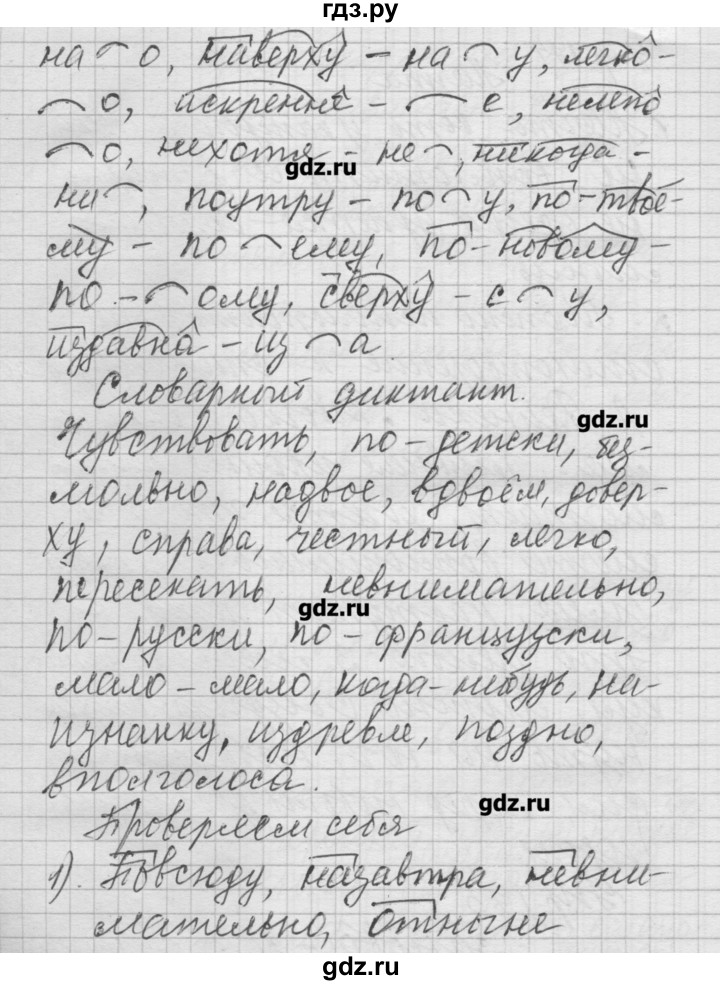 гдз.ру
на⌒о, наверху – на⌒у, легко –
⌒о, искренне – ⌒е, нелепо
⌒о, нехотя – не⌒, никогда –
gdz.ru
ни⌒, поутру – по⌒у, по-твое-
му – по⌒ему, по-новому –
по-⌒ому, сверху – с⌒у,
издавна – из⌒а
Словарный диктант.
gdz.ru
Чувствовать, по-детски, без-
мольно, надвое, вдвоём, довер-
ху, справа, честный, легко,
пересекать, невнимательно,
gdz.ru
по-русски, по-французски,
мало-мало, когда-нибудь, на-
изнанку, издревле, поздно,
вполголоса.
gdz.ru
Проверяем себя
1). Повсюду, назавтра, невни-
мательно, отныне
gdz.ru